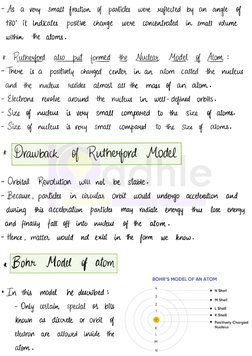 - As a very small fraction of particles were reflected by an angle of
180° it indicates positive charge were concentrated in small volume
within the atoms.
* Rutherford also put formed the Nuclear Model of Atom :
- There is a positively charged center in an atom called the nucleus
and the nucleus resides almost all the mass of an atom.
- Electrons revolve around the nucleus in well-defined orbits.
- Size of nucleus is very small compared to the size of atoms.
- Size of nucleus is very small compared to the size of atoms.
* Drawback of Rutherford Model
- Orbital Revolution will not be stable.
- Because, particles in circular orbit would undergo acceleration and
during this acceleration particles may radiate energy thus lose energy
and finally fall off into nucleus of the atom.
- Hence, matter would not exist in the form we know.
* Bohr Model of atom
* In this model he described :
- Only certain special or bits
known as discrete or orbit of
electron are allowed inside
the atom.
BOHR'S MODEL OF AN ATOM
N Shell
M Shell
L Shell
K Shell
Positively Charged
Nucleus